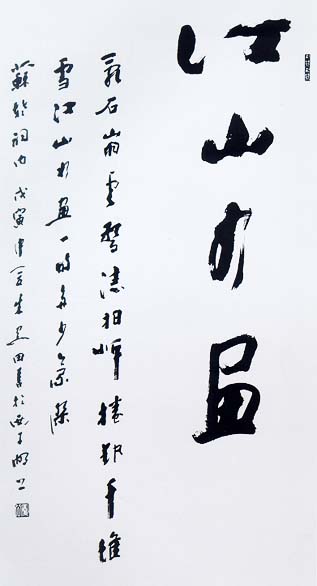 江山如画
亂石崩雲驚濤拍岸捲起千堆
雪江山如画一時多少豪傑
蘇軾詞句 戊寅 朱关田書於西子湖上